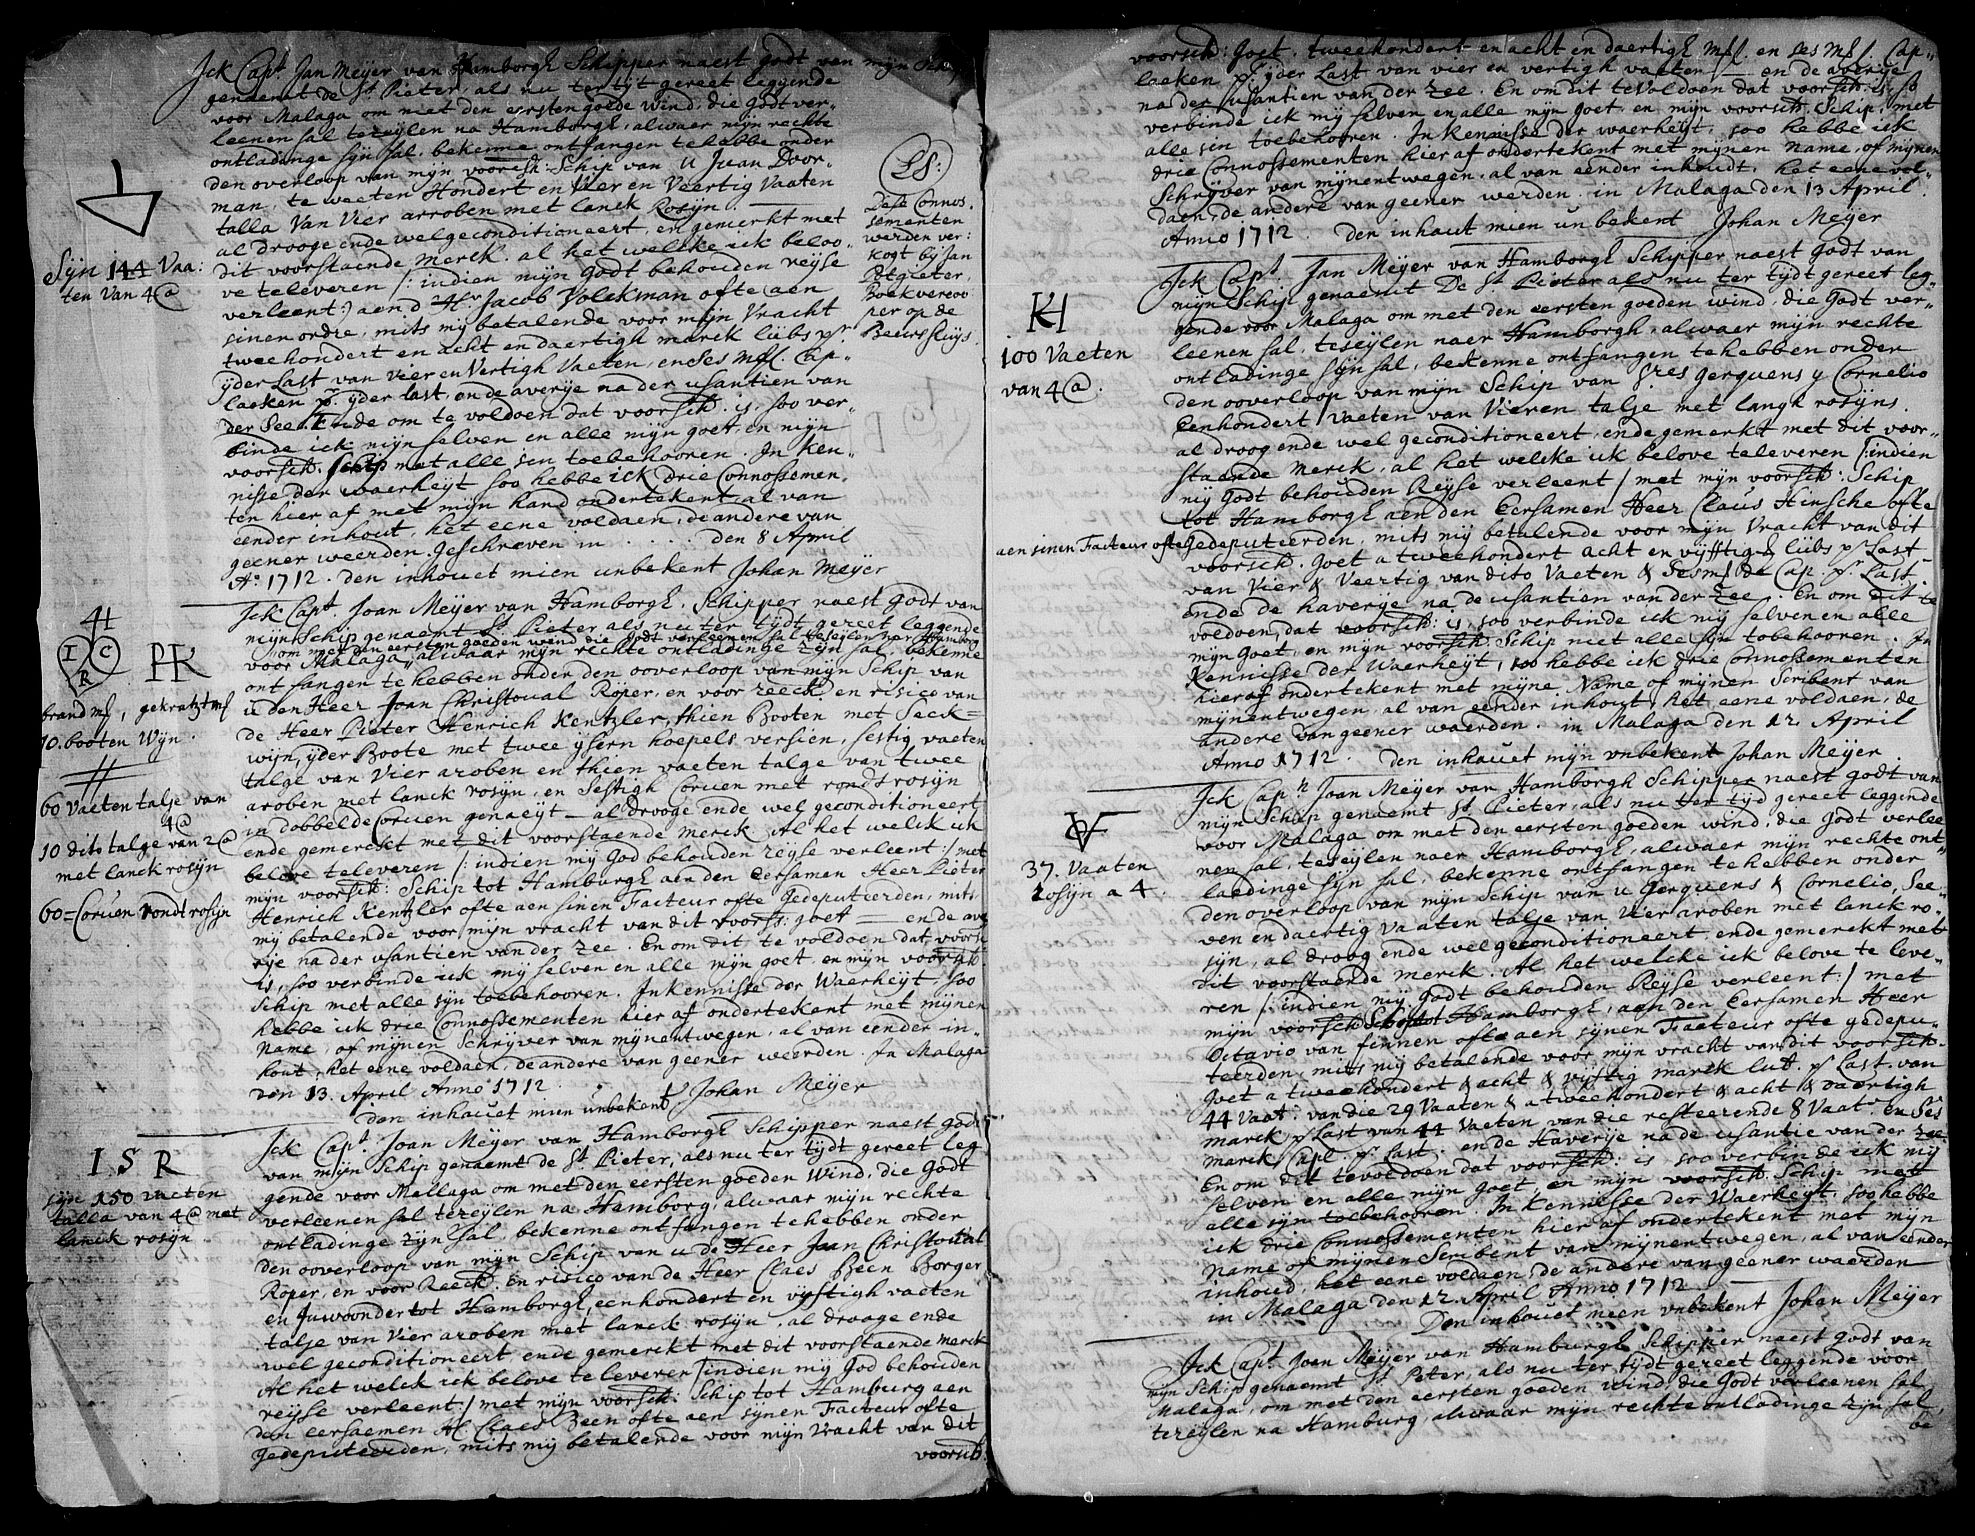 Ick Capt. Jan Meÿer van Hamborgh Schipper naest Godt van mijn
genaemt de St. Pieter, als nu ter tyt gereet leggende
voor Malaga om met den eersten goede wind, die Godt ver-
leenen sal te zeylen na Hamborgh, alwaer mijn rechte
ontladinge sijn sal, bekenne ontfangen te hebbe onder
den overloop van mijn voorsch: Schip van u Juan Door-
man, te weeten Hondert en Vier en Veertig Vaaten
talla Van Vier arroben met lanck Rosijn.
al drooge ende wel geconditioneert, en gemerkt met
dit voorstaende merck. al het welcke ick beloo-
ve televeren /: indien mijn Godt behouden reijse
verleent:/ aen d Hr. Jacob Volckman ofte aen
sinen ordre, mits my betalende voor mijn Vracht
tweehondert en acht en daertigh marck lubs pr.
ÿder Last van Vier en Vertigh Vaeten, en Ses mß. Cap-
laeken p. ÿder last, ende averije na der usantien van
der See. Ende om te voldoen dat voorsch: is, soo ver-
binde ick mijn selven en alle mijn goet, en mijn
voorsch. Schip met alle sen toebehooren. In ken-
nisse der waerheijt soo hebbe ick drie Connossemen-
ten hier af met mijn hand ondertekent al van
eender inhout, het eene voldaen, de andere van
geener weerden. Geschreven in . . . . . den 8 April
Ao. 1712. den inhouet mien unbekent Johan Meÿer
LS:
Dese Connos-
sementen
werden ver:
kogt by Jan
Potgieter
Boekverkoo
per op de
Beurssluys
Sijn 144 Vaa:
ten Van 4@
Ick Capt. Joan Meÿer van Hamborgh. Schipper naest Godt van
mijn Schip genaemt St. Pieter als nu ter tÿdt gereet leggende
om met den eersten goeden wind die Godt verleenen sal te seylen nar Hamborg
voor Malaga, alwaar mijn rechte ontladinge zijn sal, bekenne
ontfangen te hebben onder den ooverloop van mijn Schip van
u den Heer Joan Christoual Röper, en voor reeck. en risico van
de Heer Pieter Henrich Kentzler, thien Booten met Seck=
wijn, ÿder Boote met twee ÿsern hoepels versien, sestig vaeten
talge van Vier aroben en thien vaeten talge van twee
aroben met lanck rosyn, en Sestigh Coruen met rondt rosyn
in dobbelde Coruen genaeyt — al drooge ende wel geconditioneert
ende gemerckt met dit voorstaende merck Al het welck ick
belove televeren /: indien my God behouden reijse verleent:/ met
mijn voorsch: Schip tot Hamburgh aen den eersamen Heer Pieter
Henrich Kentzler ofte aen sinen Facteur ofte Gedeputeerden, mits
my betalende voor mijn vracht van dit voorss: goet — en de ave
rije na der usantien van der zee. En om dit te voldoen dat voorsch
is, soo verbinde ick mij selven en alle mijn goet, en mijn voorsch:
Schip met alle sijn toebehooren. In kennisse der Waerheijt, soo
hebbe ick drie Connossementen hier af ondertekent met mijnen
Name, of mijnen Schrijver van mijnentwegen, al van eender in-
hout, het eene voldaen, de andere van geener weerden. In Malaga
den 13. April Anno 1712. Johan Meÿer
den inhauet mien unbekent
4
I C
R
PK
brand mß, gekratzt mß
10. booten Wijn.
60 Vaeten talje van
4@
10 dito talge van 2@
met lanck rosijn
60=Coruen rondt rosijn
Ick Capt. Joan Meÿer van Hamborgh Schipper naest Godt
van mijn Schip genaemt de St. Pieter, als nu ter tÿdt gereet leg
gende voor Mallaga om met den eersten goeden Wind, die Godt
verleenen sal te zeylen na Hamborg, alwaer mijn rechte
ontladinge zijn sal, bekenne ontfangen te hebben onder
den ooverloop van mijn Schip van u de Heer Joan Christoual
Röper, en voor Reeck. en risico van de Heer Claes Been Borger
en Inwoonder tot Hamborgh, een hondert en vijftigh vaeten
talje van Vier aroben met lanck rosyn, al drooge ende
wel geconditioneert ende gemerckt met dit voorstaende merck
Al het welck ick belove televeren /: indien mij God behouden
reijse verleent:/ met mijn voorsch: Schip tot Hamburg aen
den eersaemen Hr. Claes Been ofte aen sijnen Facteur ofte
Gedeputeerden, mits my betalende voor mijn Vracht van dit
voorsch:
I S R
sijn 150 vaeten
talla van 4@ met
lanck rosijn
voorsch: Goet. tweehondert en acht en daertigh mß. en ses mß. Cap-
laeken p. ÿder Last van vier en vertigh vaeten — en de averije
na der usantien van der zee. En om dit te voldoen dat voorsch: is, so
verbinde ick my selven en alle mijn goet, en mijn voorsch: Schip, met
alle sen toebehooren. In Kennisse der waerheijt, soo hebbe ick
drie Connossementen hier af ondertekent met mijnen name, of mijnen
Schrijver van mijnentwegen, al van eender inhoudt, het eene vol-
daen, de andere van geener werden. in Malaga den 13 April
Anno 1712. den inhaut mien unbekent Johan Meÿer
Ick Capt. Jan Meÿer van Hamborgh Schipper naest Godt van
mijn Schip genaemt De St. Pieter als nu ter tÿdt gereet leg-
gende voor Malaga om met den eersten goeden wind, die Godt ver-
leenen sal, te seylen naer Hamborgh, alwaer mijn rechte
ontladinge sijn sal, bekenne ontfangen te hebben onder
den ooverloop van mijn Schip van Sres Gerquens y Cornelio
Eenhondert Vaeten van Vieren talje met langh rosijns.
al droog ende wel geconditioneert, ende gemerkt met dit voor-
staende merck, al het welcke ick belove televeren /: indien
mij Godt behouden Reijse verleent / met mijn voorsch: Schip
tot Hamborgh aen den Eersamen Heer Claus Hinsche ofte
aen sinen Facteur ofte Gedeputeerden, mits mij betalende voor mijn Vracht van dit
voorsch. Goet a tweehondert acht en vijfftigh lübs pr Last
van Vier & Veertig van dito Vaeten & Ses mß de Cap. pr. Last
ende de haverije na de usantien van der zee. En om dit te
voldoen, dat voorsch: is, soo verbinde ick mij selven en alle
mijn goet, en mijn voorsch. Schip met alle sijn tobehooren. In
Kennisse der Waerheijt, soo hebbe ick drie Connossementen
hier af ondertekent met mijne Name of mijnen Scribent van
mijnentwegen, al van eender inhout, het eene voldaen, de
andere van geener waerden. in Malaga den 12 April
Anno 1712. Den inhauet mijn unbekent Johan Meÿer
KH
100 Vaeten
van 4@.
Ick Capn. Joan Meÿer van Hamborgh Schipper naest Godt van
mijn Schip genaemt St. Pieter, als nu ter tijd gereet leggende
voor Malaga om met den eersten goeden wind, die Godt verlee
nen sal, te seylen naer Hamborgh, alwaer mijn rechte ont-
laedinge sijn sal, bekenne ontfangen te hebben onder
den overloop van mijn Schip van u Gerquens & Cornelio, See-
ven en daertig Vaaten talje van Vier aroben met lanck ro-
sijn, al droog ende wel geconditioneert, ende gemerckt met
dit voorstaende merck. Al het welcke ick belove te leve-
ren /: indien mij Godt behouden Reijse verleent:/ met
mijn voorsch Schip tot Hamborgh, aen den Eersamen Heer
Octavio van finnen ofte aen sijnen Facteur ofte gedepu-
teerden, mits mij betalende voor mijn vracht van dit voorsch.
Goet a tweehondert & acht & vijftig marck lub. pr Last. van
44 Vaat: van die 29 Vaaten & a tweehondert & acht & daertigh
marck pr Last van 44 Vaeten van die resteerende 8 Vaatn. en Ses
marck Capl. pr. Last. ende de Haverije na de usantie van der zee.
En om dit tevoldoen dat voorsch: is soo verbinde ick mij
selven en alle mijn goet en mijn voorsch. Schip met
alle sijn toebehooren. In Kennisse der Waerheijt, soo hebbe
ick drie Connossementen hier af ondertekent met mijn
name of mijnen Scribent van mijnentwegen, al van eender
inhoud, het eene voldaen, de andere van geener waerden
in Malaga den 12 April Anno 1712
Den inhouet meen unbekent Johan Meÿer
37. Vaaten
Rosijn a 4.
Ick Capt. Joan Meÿer van Hamburgh Schipper naest Godt van
mijn Schip genaemt St Peter, als nu ter tijdt gereet leggende voor
Malaga, om met den eersten goeden wind, die Godt verleenen sal
te zeylen na Hamburg, alwaar mijn rechte ontladinge zijn sal,
be